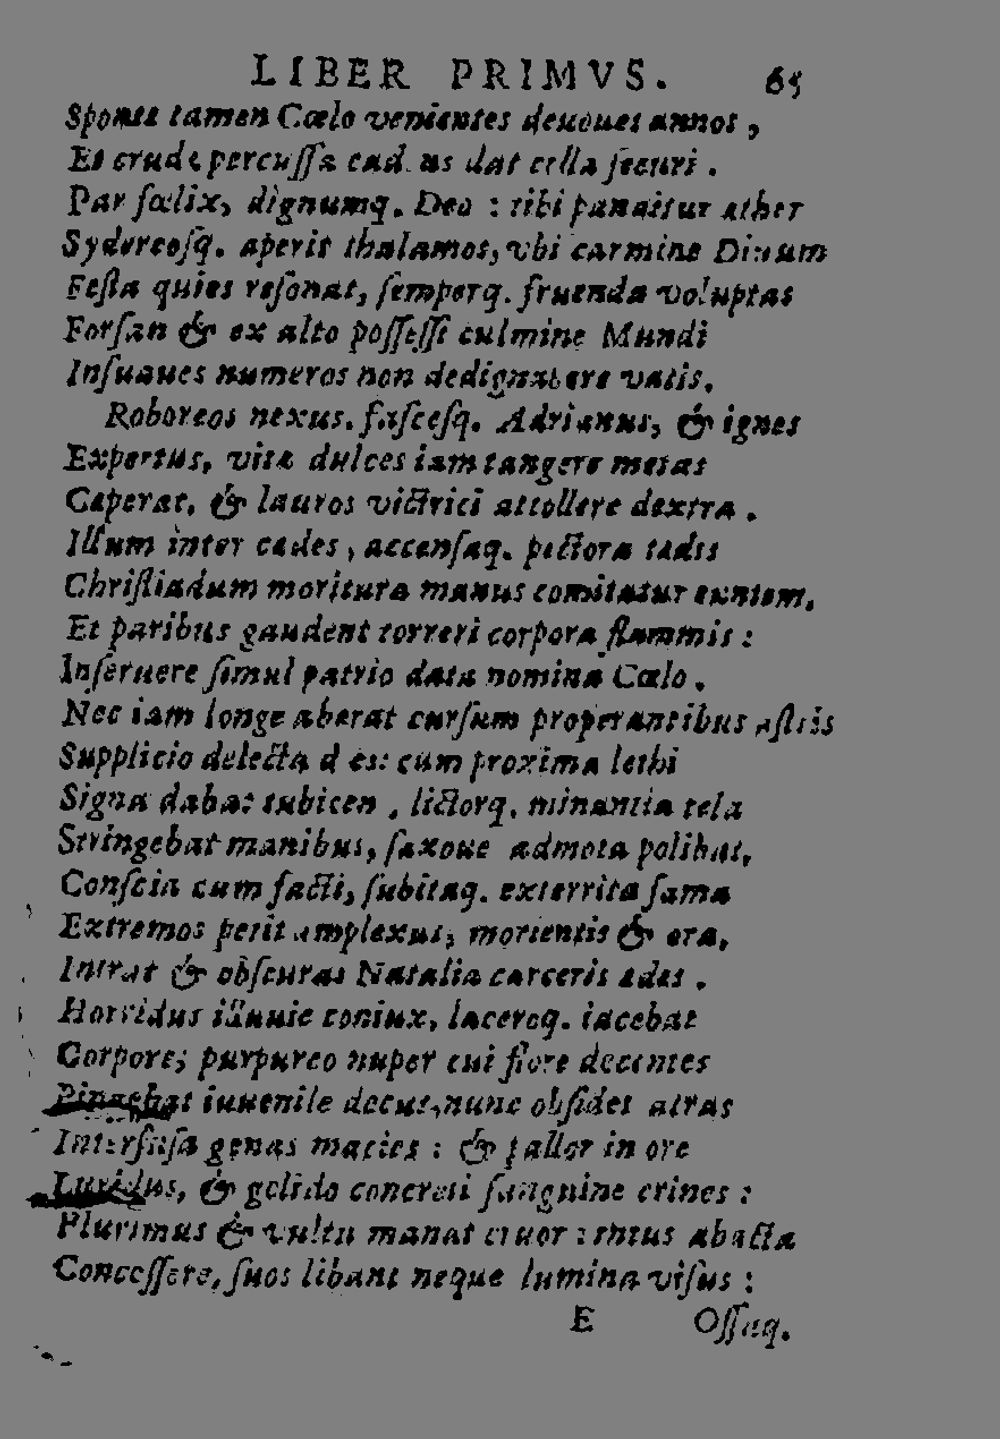 LIBER PRIMVS. 65
Sponte tamen Cœlo venientes deuoues annos,
Et crude percuſſa cad us dat colla ſecuri.
Par fœlix, dignumq. Deo: tibi panditur æther
Sydereoſq. aperit thalamos, vbi carmine Diuum
Feſta quies reſonat, ſemperq. fruenda voluptas
Forſan & ex alto poſſeſſi culmine Mundi
Inſuaues numeros non dedignabere vatis.
Roboreos nexus, faſceſq. Adrianus, & ignes
Expertus, vitæ dulces iam tangere metas
Cæperat, & lauros victrici attollere dextra.
Illum inter cædes, accenſaq. pectora tædis
Chriſtiadum moritura manus comitatur euntem,
Et paribus gaudent torreri corpora flammis:
Inſeruere ſimul patrio data nomina Cœlo.
Nec iam longe aberat curſum properantibus aſtris
Supplicio delecta dies: cum proxima lethi
Signa dabat tubicen, lictorq. minantia tela
Stringebat manibus, ſaxoue admota polibat,
Conſcia cum facti, ſubitaq. exterrita fama
Extremos petit amplexus, morientis & ora,
Intrat & obſcuras Natalia carceris ædes.
Horridus illuuie coniux, laceroq. iacebat
Corpore; purpureo nuper cui flore decentes
Pingebat iuuenile decus, nunc obſidet atras
Interfuſa genas macies: & pallor in ore
Luridus, & gelido concreti ſanguine crines:
Plurimus & vultu manat cruor: intus abacta
Conceſſere, ſuos libant neque lumina viſus:
E Oſſaq.